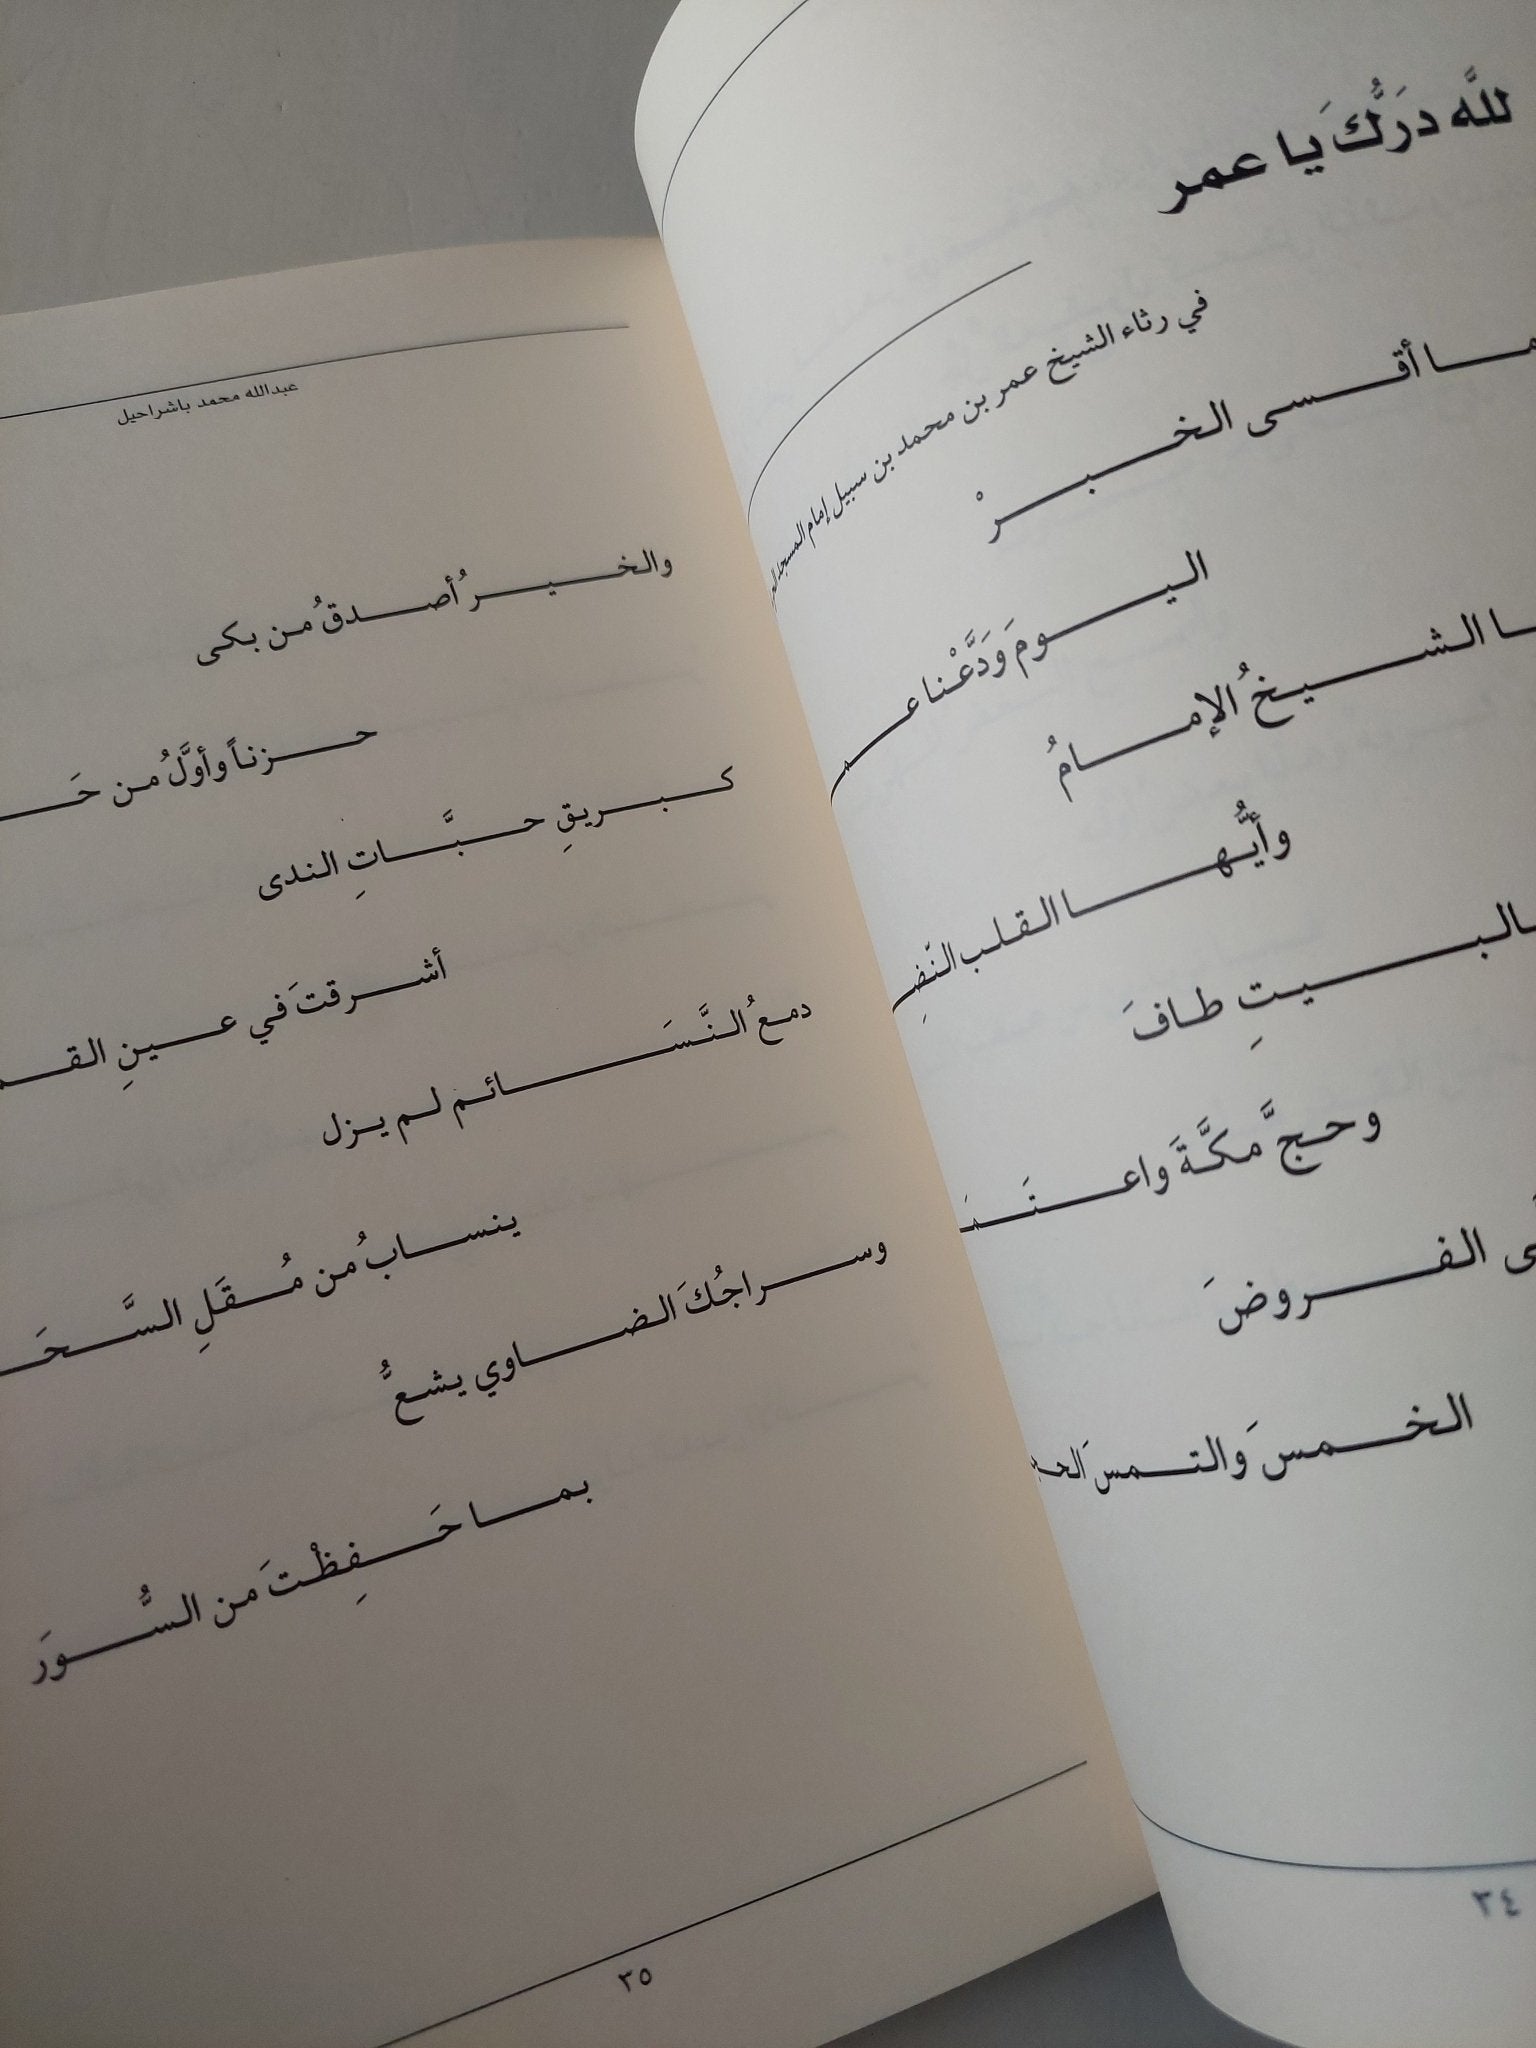 للَّه درَّكَ يا عمر
في رثاء الشيخ عمر بن محمد بن سبيل إمام المسجد
ما أقسى الخبرْ
اليومَ وَدَّعْنا
الشيخُ الإمامُ
وأيُّها القلب
بالبيتِ طافَ
وحجَّ مكَّةَ
الفروضَ
الخمسَ والتمسَ
٣٤
عبدالله محمد باشراحيل
والخيرُ أصدقُ من بكى
حزناً وأوَّلُ من
كبريقِ حبَّاتِ الندى
أشرقتَ في عينِ
دمعُ النَّسَائم لم يزل
ينسابُ من مُقَلِ
وسراجُكَ الضاوي يشعُّ
بما حَفِظْتَ من السُّورَ
٣٥